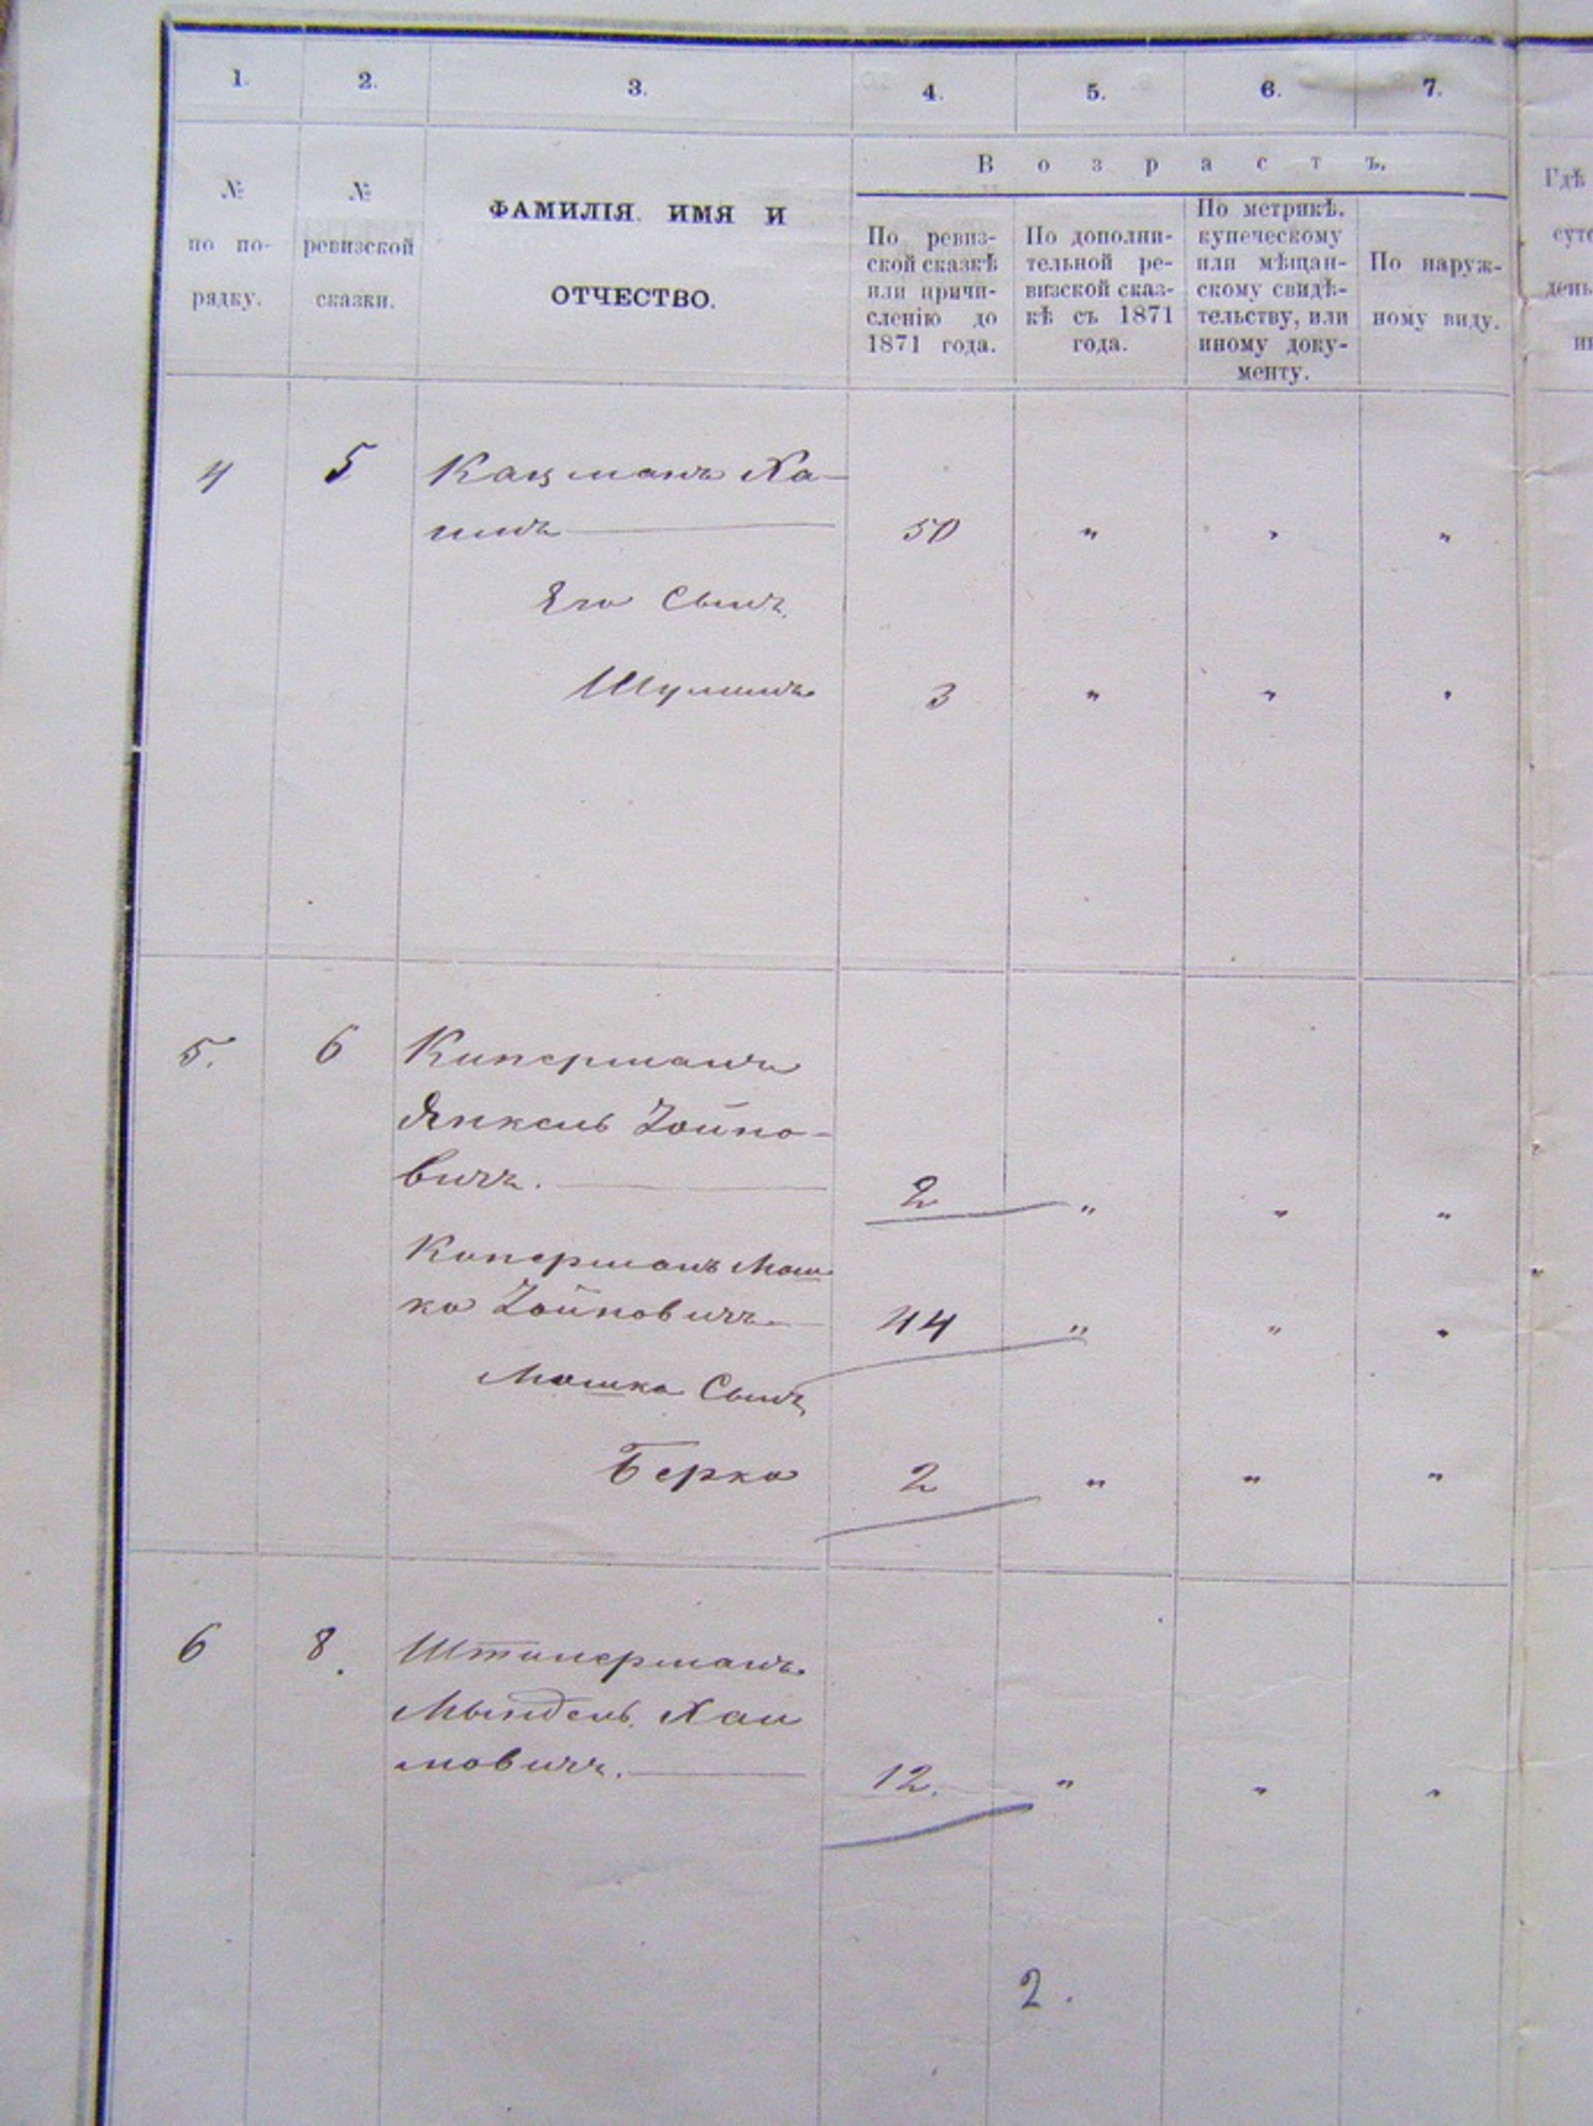 1. 2. 3. 4. 5. 6. 7.
№ по по-рядку.
№ ревизской сказки.
ФАМИЛІЯ ИМЯ И
ОТЧЕСТВО.
Возрастъ.
По ревиз-
ской сказкѣ
или причи-
сленію до
1871 года.
По дополни-
тельной ре-
визской сказ-
кѣ съ 1871
года.
По метрикѣ,
купеческому
или мѣщан-
скому свидѣ-
тельству, или
иному доку-
менту.
По наруж-
ному виду.
Гдѣ
4 5 Кацманъ Ха-
имъ 50 " " "
Его Сынъ
Шулимъ 3 " " "
5. 6 Киперманъ
Янкель Зойно-
вичъ. 2 " " "
Киперманъ Мош
ко Зойновичъ 44 " " "
Мошка Сынъ
Берко 2 " " "
6 8. Штиперманъ
Мындель Хаи
мовичъ. 12. " " "
2.